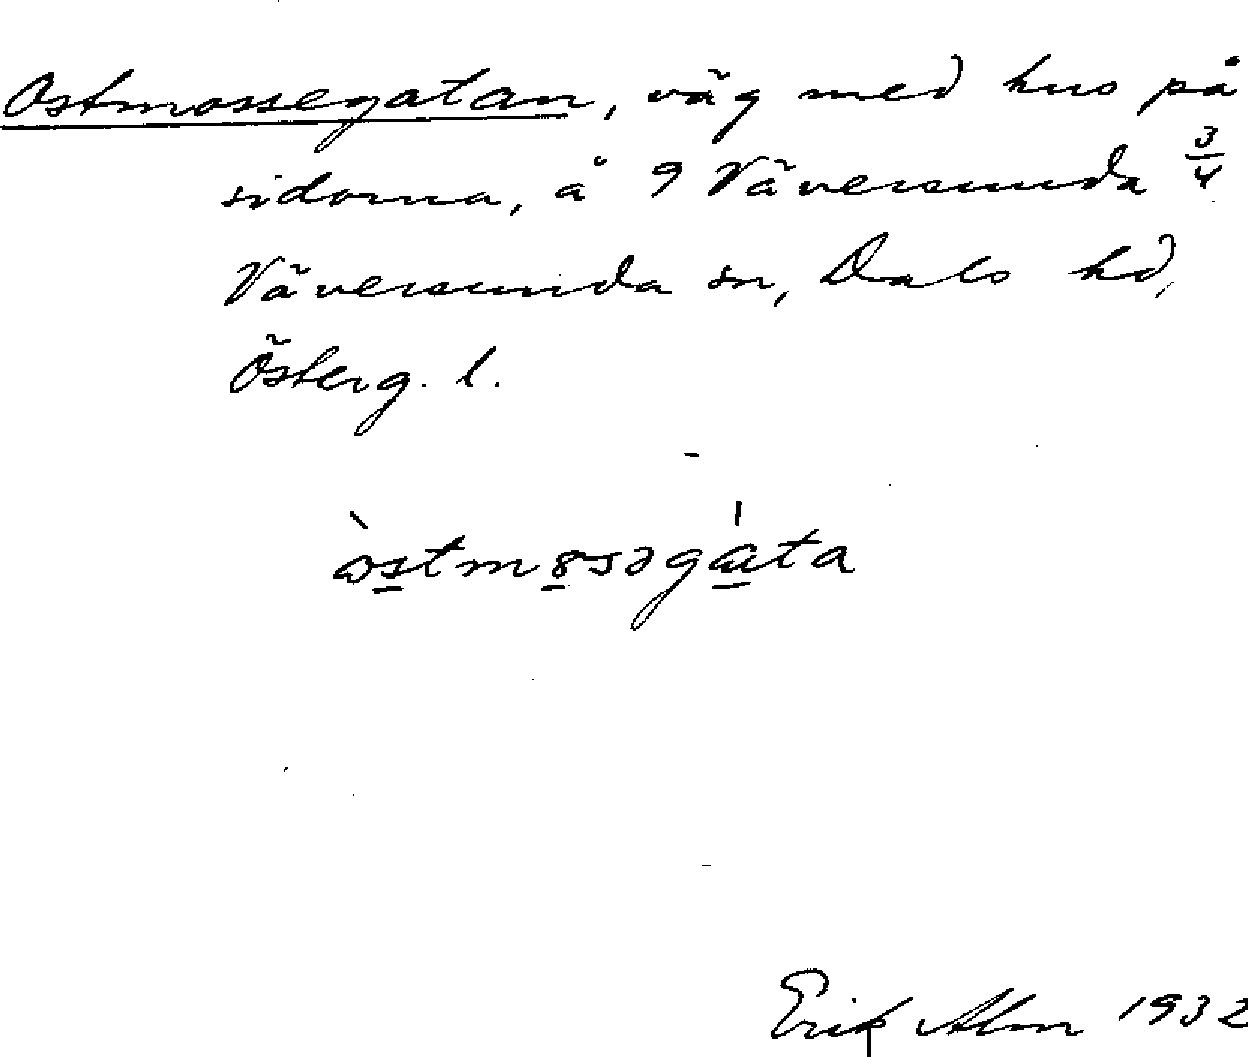 Ostmossegatan, väg med hus på
sidorna, å 9 Väversunda 3/4
Väversunda sn, Dals hd,
Österg. l.
Erik Alm 1932